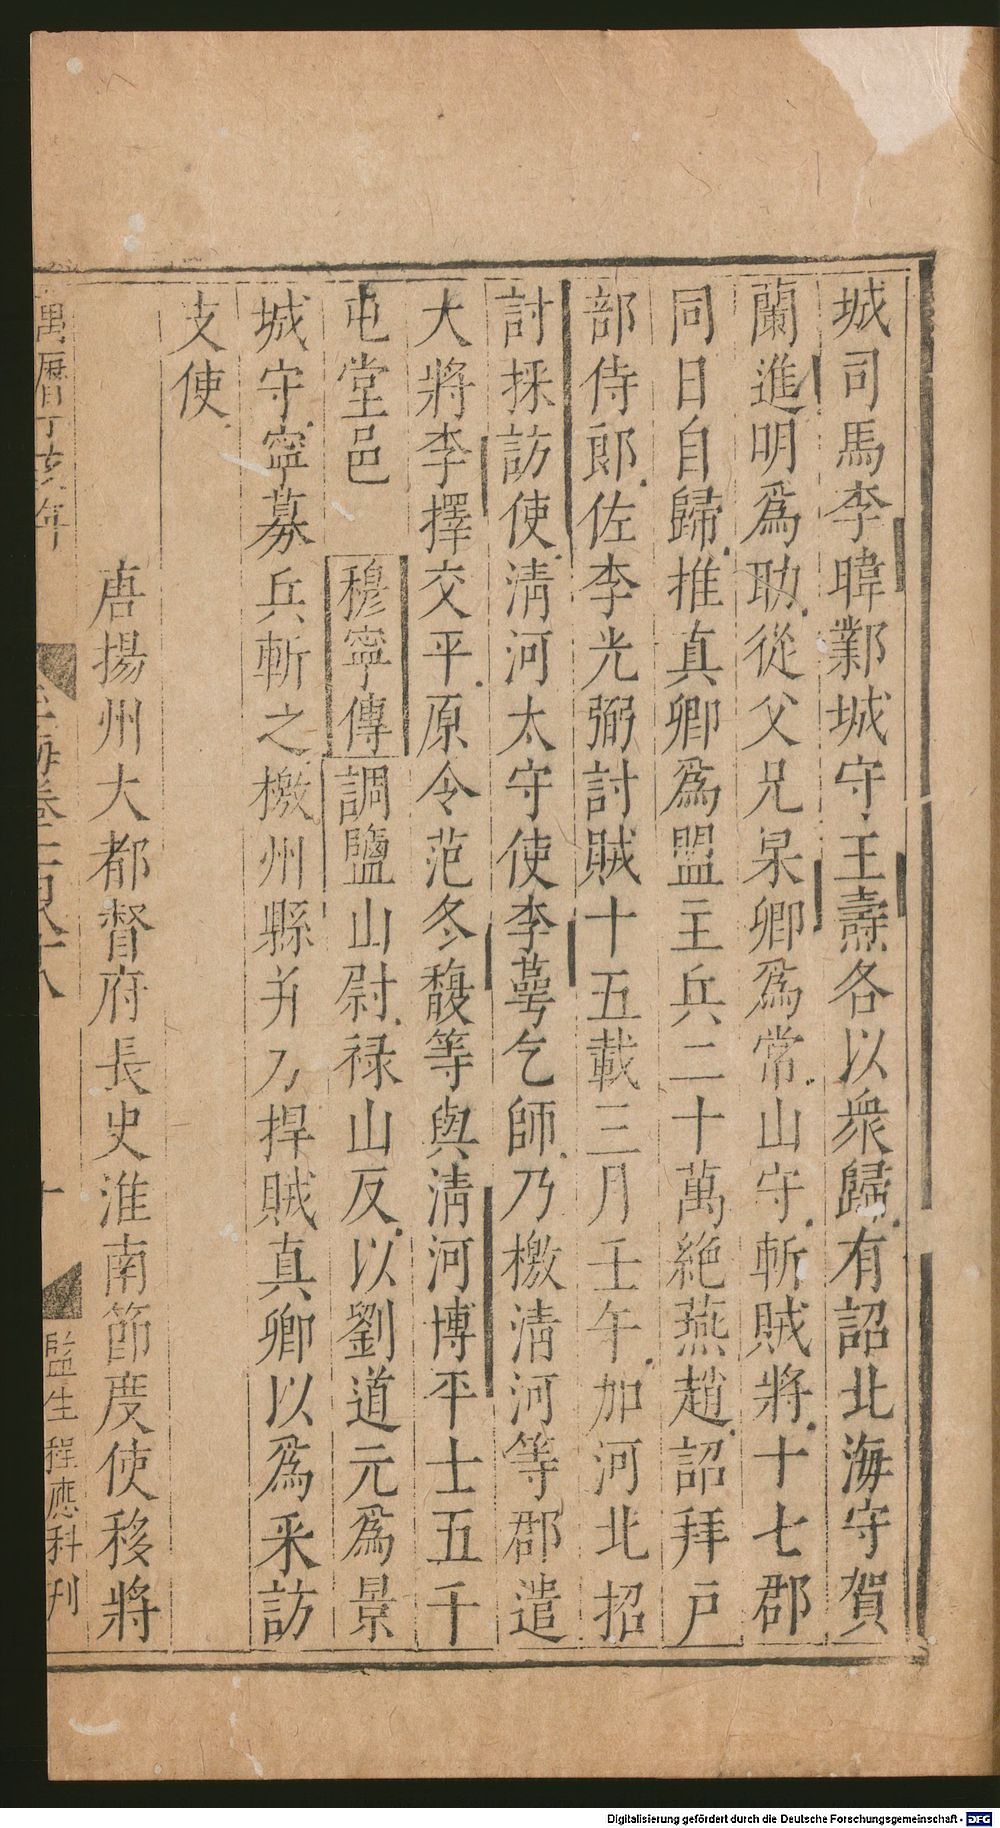 城司馬李暐鄴城守王燾各以衆歸有詔北海守賀
蘭進明爲助從父兄杲卿爲常山守斬賊將十七郡
同日自歸推真卿爲盟主兵二十萬絶燕趙詔拜戶
部侍郎佐李光弼討賊十五載三月壬午加河北招
討採訪使清河太守使李蕚乞師乃檄清河等郡遣
大將李擇交平原令范冬馥等與清河博平士五千
屯堂邑 穆寧傳調鹽山尉禄山反以劉道元爲景
城守寧募兵斬之檄州縣并力捍賊真卿以爲采訪
支使
唐揚州大都督府長史淮南節度使移將
萬曆丁亥年 玉海卷一百八十八 十 監生程應科刊
Digitalisierung gefördert durch die Deutsche Forschungsgemeinschaft - DFG